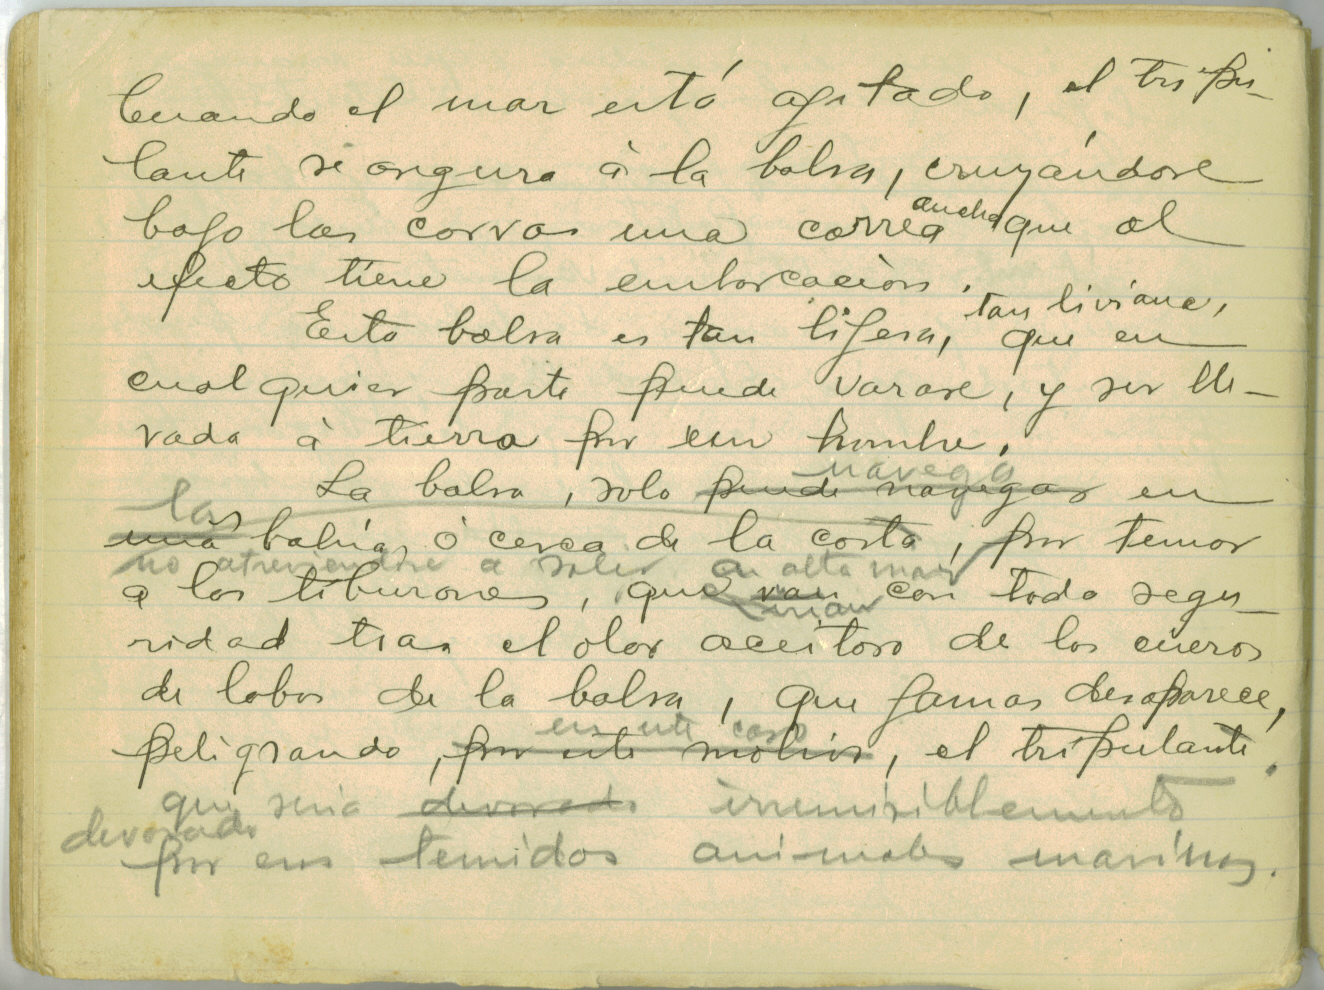 Cuando el mar está agitado, el tripu-
lante se asegura à la balsa, cruzándose
bajo las corvas una correa ancha que al
efecto tiene la embarcación.
Esta balsa es tan lijera, tan liviana, que en
cualquier parte puede vararse, y ser lle-
vada à tierra por un hombre.
navega
La balsa, solo puede navegar en
las
una bahías, ò cerca de la costa, por temor
no atreviéndose a salir en alta mar
a los tiburones, que van con toda segu-
irian
ridad tras el olor aceitoso de los cueros
de lobos de la balsa, que jamas desaparece,
en este caso
peligrando, por este motivo, el tripulante.
que seria devorado irremisiblemente
devorado
por esos temidos animales marinos.